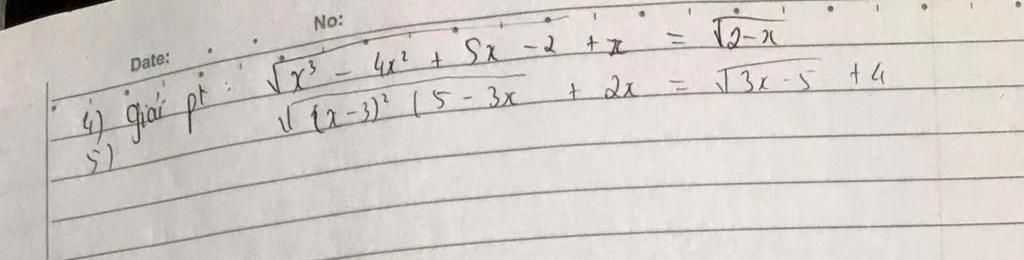 Date: No:
4) giải pt: √(x³ - 4x² + 5x - 2) + x = √(2-x)
5) √((x-3)² (5-3x) + 2x = √(3x-5) + 4